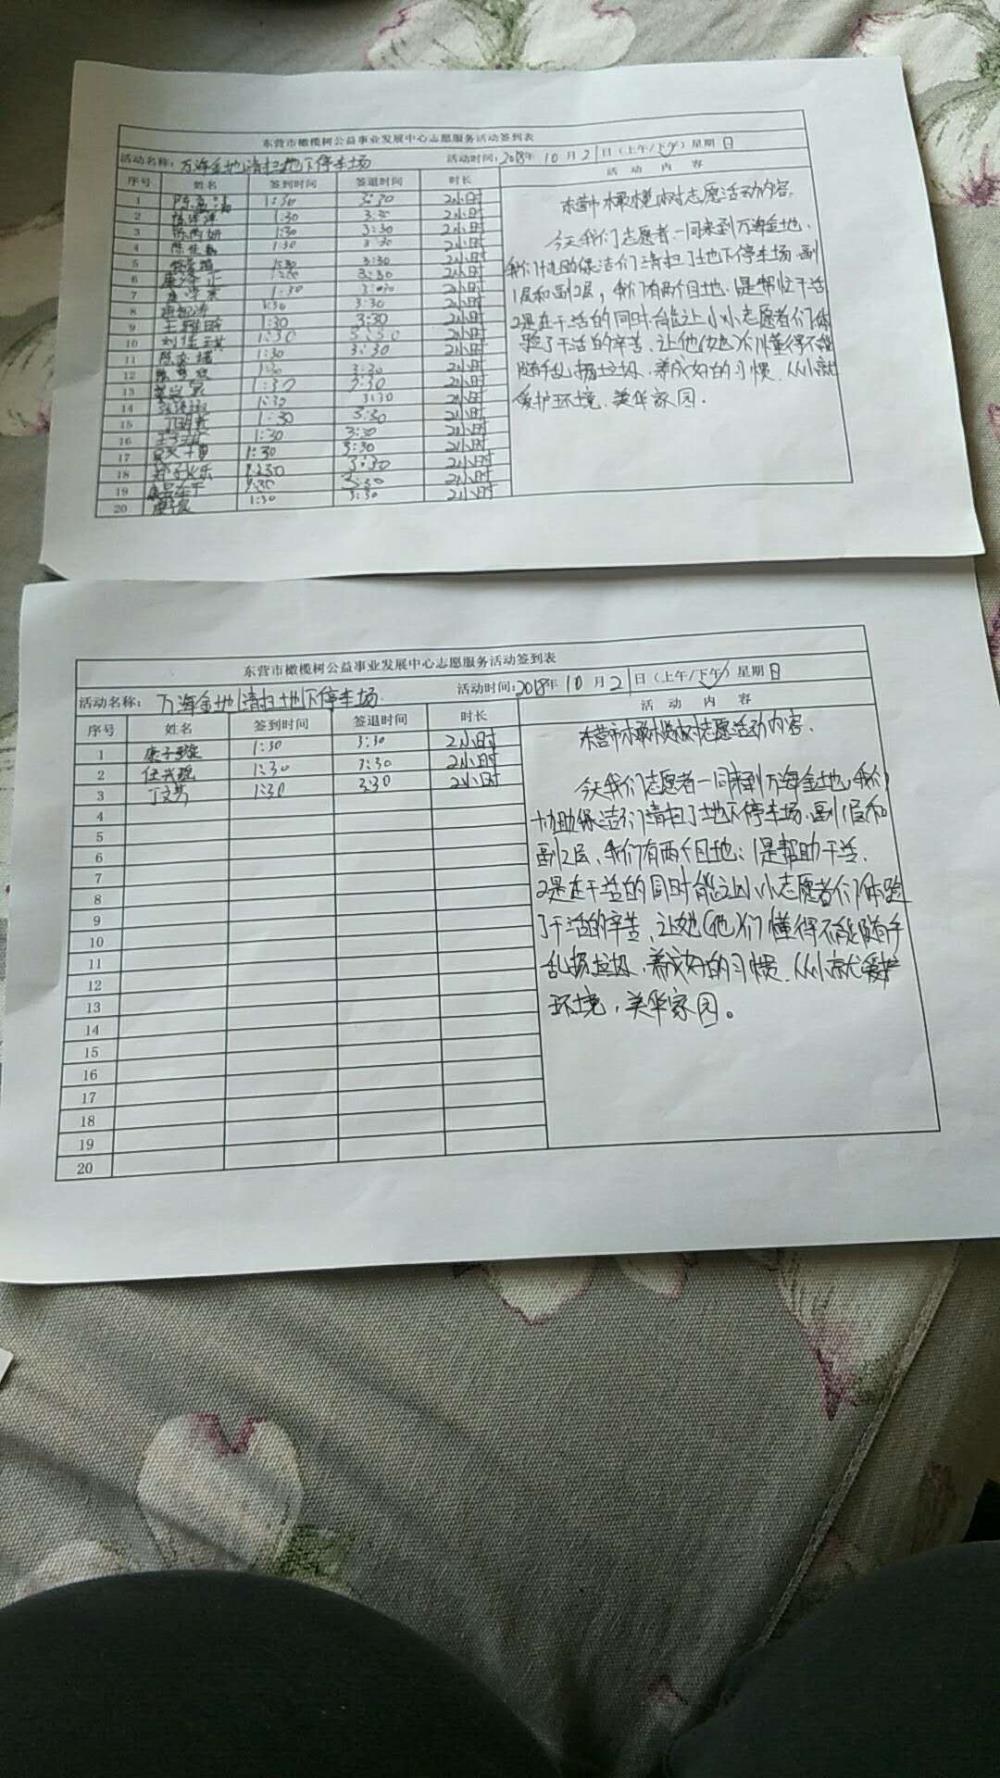 东营市橄榄树公益事业发展中心志愿服务活动签到表
活动名称：万海金地清扫地下停车场 活动时间：2018年10月21日（上午/下午）星期日
序号 姓名 签到时间 签退时间 时长 活动内容
1 1:30 3:30 2小时
2 1:30 3:30 2小时
3 1:30 3:30 2小时
4 1:30 3:30 2小时
5 1:30 3:30 2小时
6 1:30 3:30 2小时
7 1:30 3:30 2小时
8 1:30 3:30 2小时
9 1:30 3:30 2小时
10 1:30 3:30 2小时
11 1:30 3:30 2小时
12 1:30 3:30 2小时
13 1:30 3:30 2小时
14 1:30 3:30 2小时
15 1:30 3:30 2小时
16 1:30 3:30 2小时
17 1:30 3:30 2小时
18 3:30 2小时
19 3:30 2小时
20 1:30 3:30 2小时
东营市橄榄树志愿活动内容.
今天我们志愿者一同来到万海金地,
我们协助保洁们清扫了地下停车场.副
1层和副2层，我们有两个目地.1是帮忙干活
2是在干活的同时能让小小志愿者们体
验了干活的辛苦、让他(她)们懂得不能
随手乱扔垃圾、养成好的习惯.从小就
爱护环境、美华家园.
东营市橄榄树公益事业发展中心志愿服务活动签到表
活动名称：万海金地清扫地下停车场. 活动时间：2018年10月21日（上午/下午）星期日
序号 姓名 签到时间 签退时间 时长 活动内容
1 1:30 3:30 2小时
2 1:30 3:30 2小时
3 丁文芳 1:30 3:30 2小时
4
5
6
7
8
9
10
11
12
13
14
15
16
17
18
19
20
东营市橄榄树志愿活动内容.
今天我们志愿者一同来到万海金地,我们
协助保洁们清扫了地下停车场.副1层和
副2层、我们有两个目地：1是帮助干活.
2是在干活的同时能让小小志愿者们体验
了干活的辛苦、让她(他)们懂得不能随手
乱扔垃圾、养成好的习惯.从小就爱护
环境，美华家园。